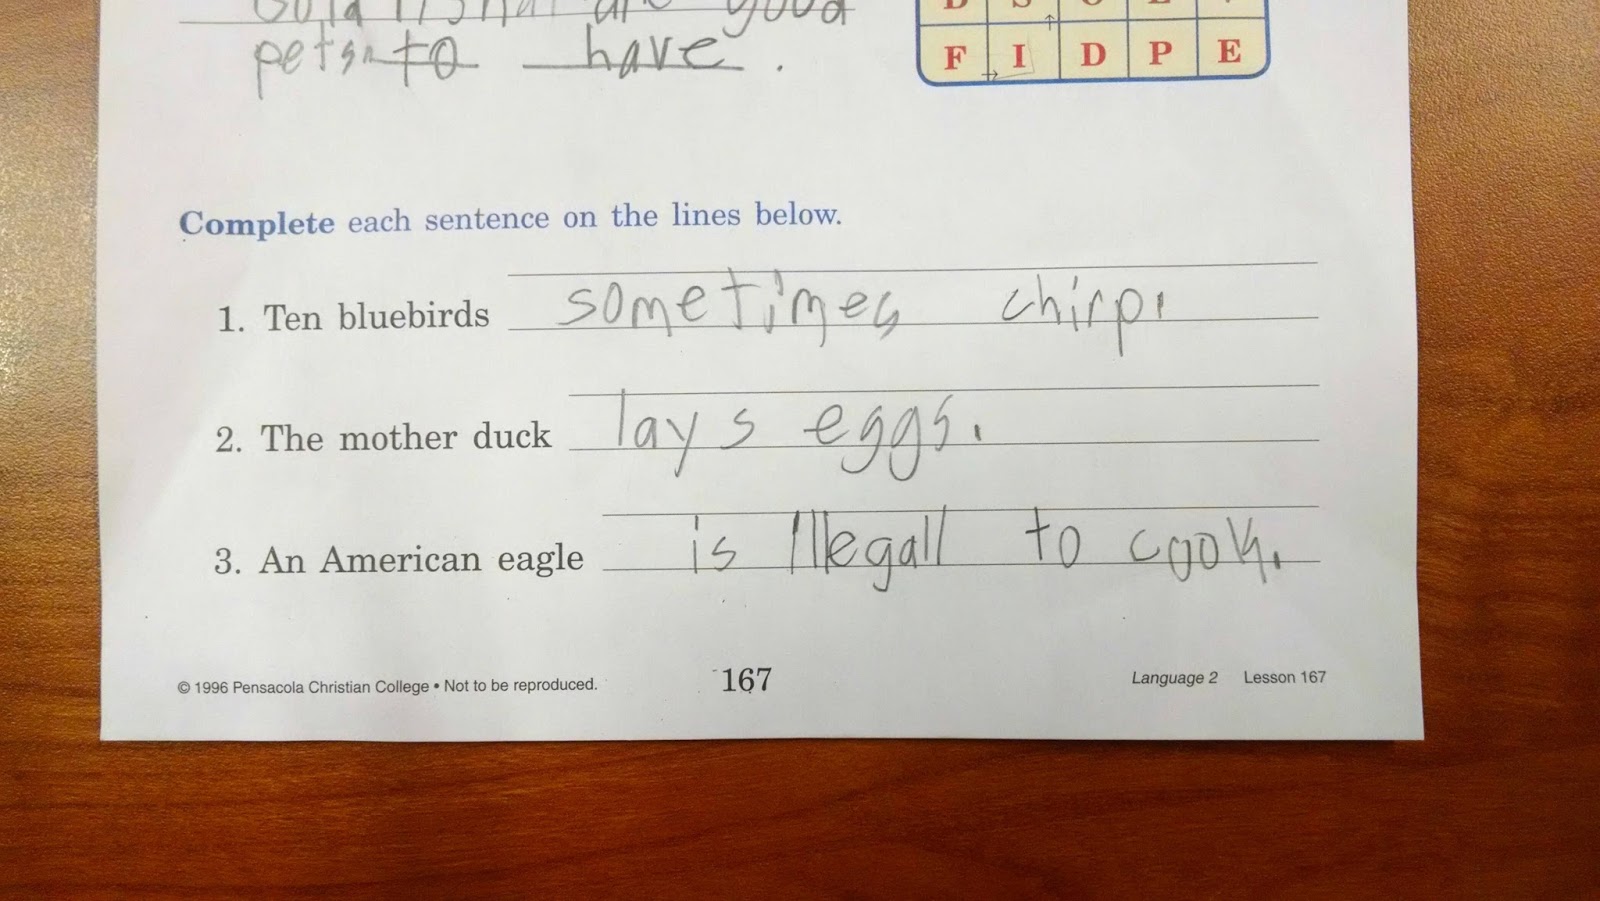 are good
pets to have.
F I D P E
Complete each sentence on the lines below.
1. Ten bluebirds sometimes chirp.
2. The mother duck lays eggs.
3. An American eagle is Illegall to cook.
© 1996 Pensacola Christian College • Not to be reproduced.
167
Language 2 Lesson 167